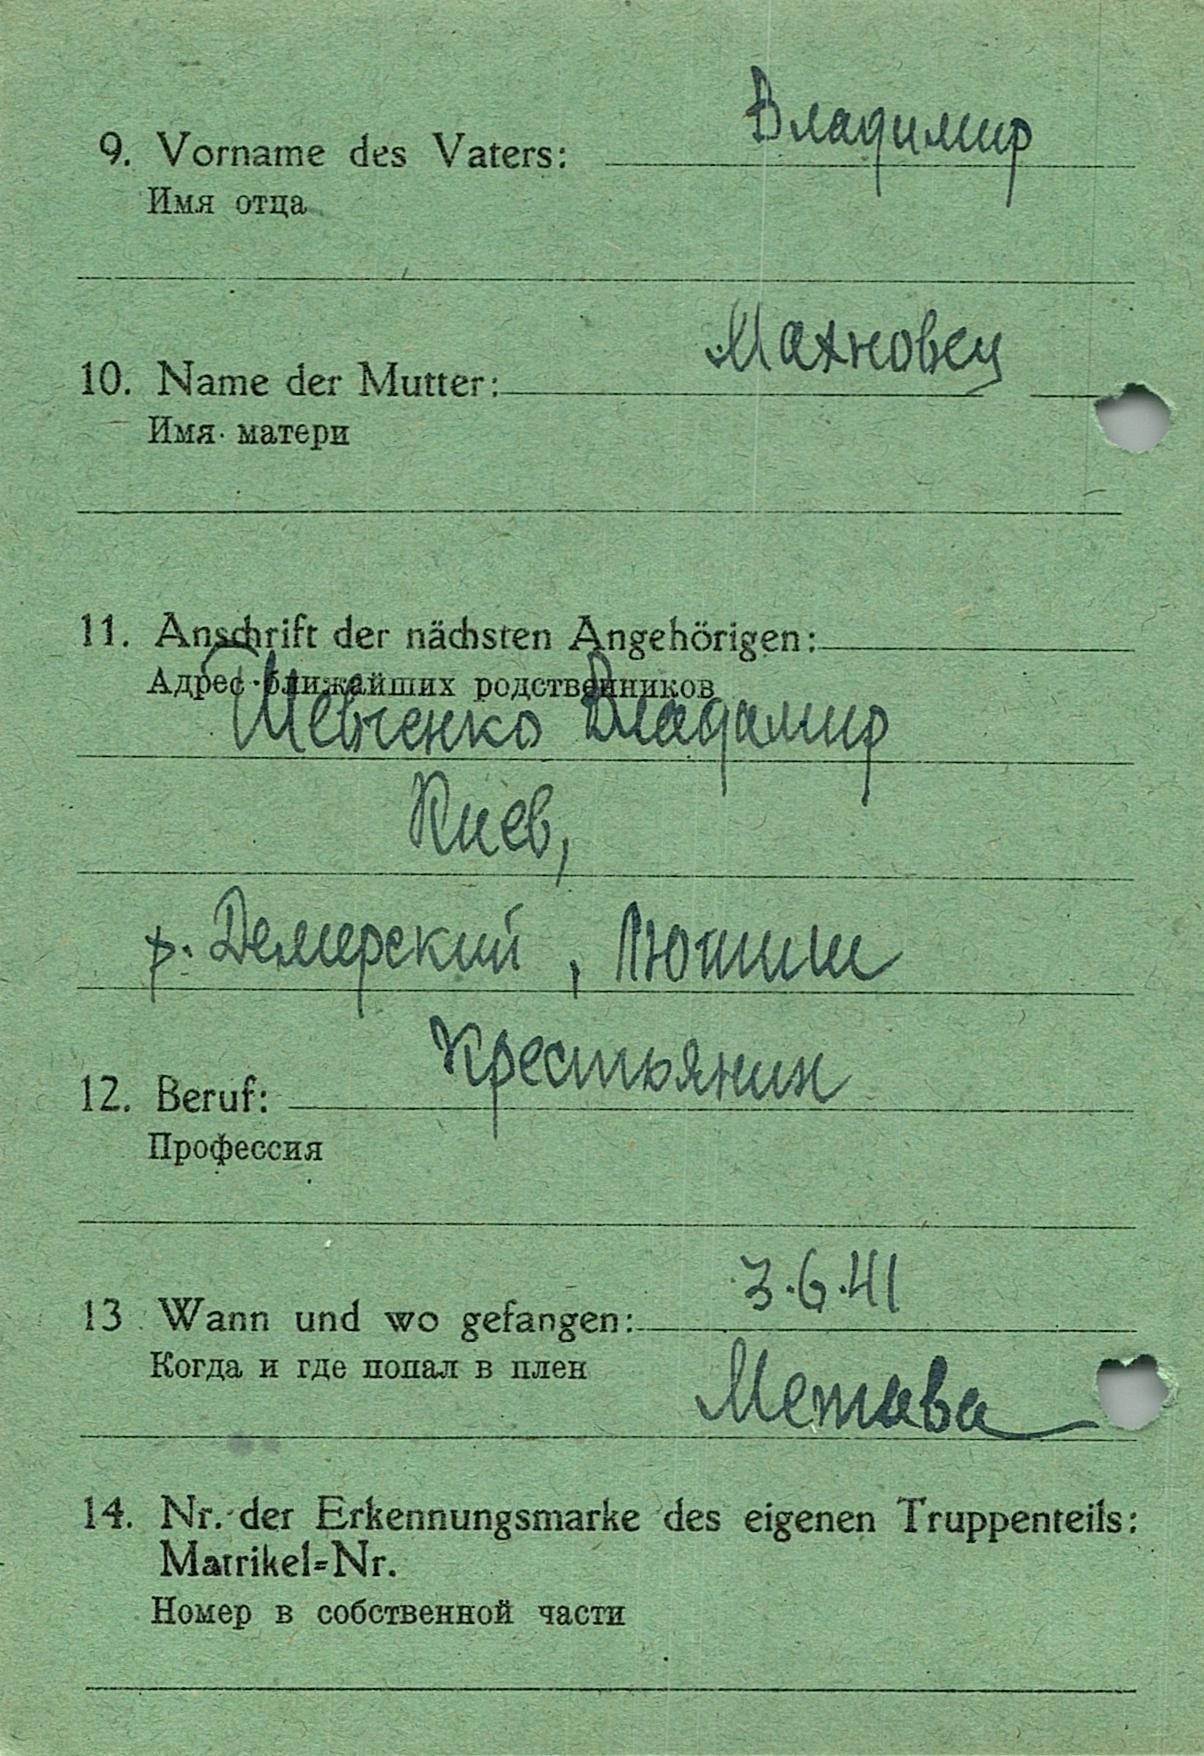 Владимир
9. Vorname des Vaters:
Имя отца
Махновец
10. Name der Mutter:
Имя матери
11. Anschrift der nächsten Angehörigen:
Адрес ближайших родственников
Шевченко Владимир
Киев,
р. Демерский,
Крестьянин
12. Beruf:
Профессия
3.6.41
13 Wann und wo gefangen:
Когда и где попал в плен
14. Nr. der Erkennungsmarke des eigenen Truppenteils:
Matrikel-Nr.
Номер в собственной части